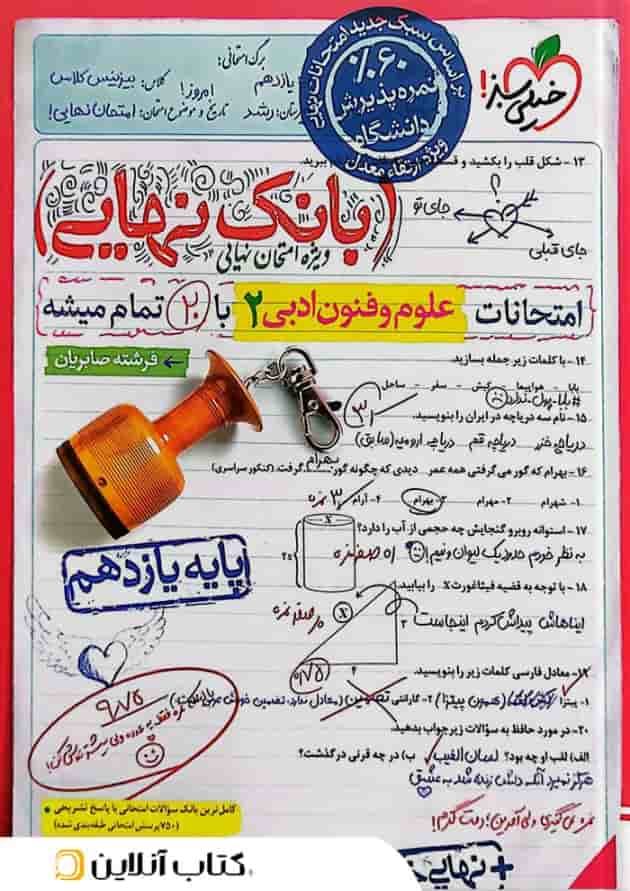 خیلی سبز!
بر اساس سبک جدید امتحانات نهایی
۶۰٪
نمره پذیرش
دانشگاه
ویژه ارتقاء معدل
برگ امتحانی:
یازدهم
امروز! کلاس: بیزینس کلاس
رشد تاریخ و موضوع امتحان: امتحان نهایی!
۱۳- شکل قلب را بکشید و ببرید.
؟
جای تو
جای قبلی
(بانک نهایی)
ویژه امتحان نهایی
امتحانات علوم و فنون ادبی ۲ با ۲۰ تمام میشه
فرشته صابریان
۱۴- با کلمات زیر جمله بسازید.
بابا - هواپیما - کیش - سفر - ساحل
#بابا_پول_نداره
۱۵- نام سه دریاچه در ایران را بنویسید.
دریاچه خزر دریاچه قم دریاچه ارومیه (سابق)
۱۶- بهرام که گور می گرفتی همه عمر دیدی که چگونه گور بهرام گرفت. (کنکور سراسری)
۱- شهرام ۲- مهرام ۳- بهرام ۴- آرام
۱۷- استوانه روبرو گنجایش چه حجمی از آب را دارد؟
به نظر خودم حدود یک لیوان و نیم!
۱۸- با توجه به قضیه فیثاغورث X را بیابید.
X
ایناهاش پیداش کردم اینجاست
پایه یازدهم
۱۹- معادل فارسی کلمات زیر را بنویسید.
۱- پیتزا (همون پیتزا) ۲- گارانتی تضمین
۲۰- در مورد حافظ به سؤالات زیر جواب بدهید.
الف) لقب او چه بود؟ لسان الغیب ب) در چه قرنی درگذشت؟
هرگز نمیرد آنکه دلش زنده شد به عشق
۹٫۷۵
کامل‌ترین بانک سؤالات امتحانی با پاسخ تشریحی
(۷۵۰ پرسش امتحانی طبقه‌بندی شده)
نمره نمی‌گیری ولی آفرین! دمت گرم!
نهایی +
کتاب آنلاین